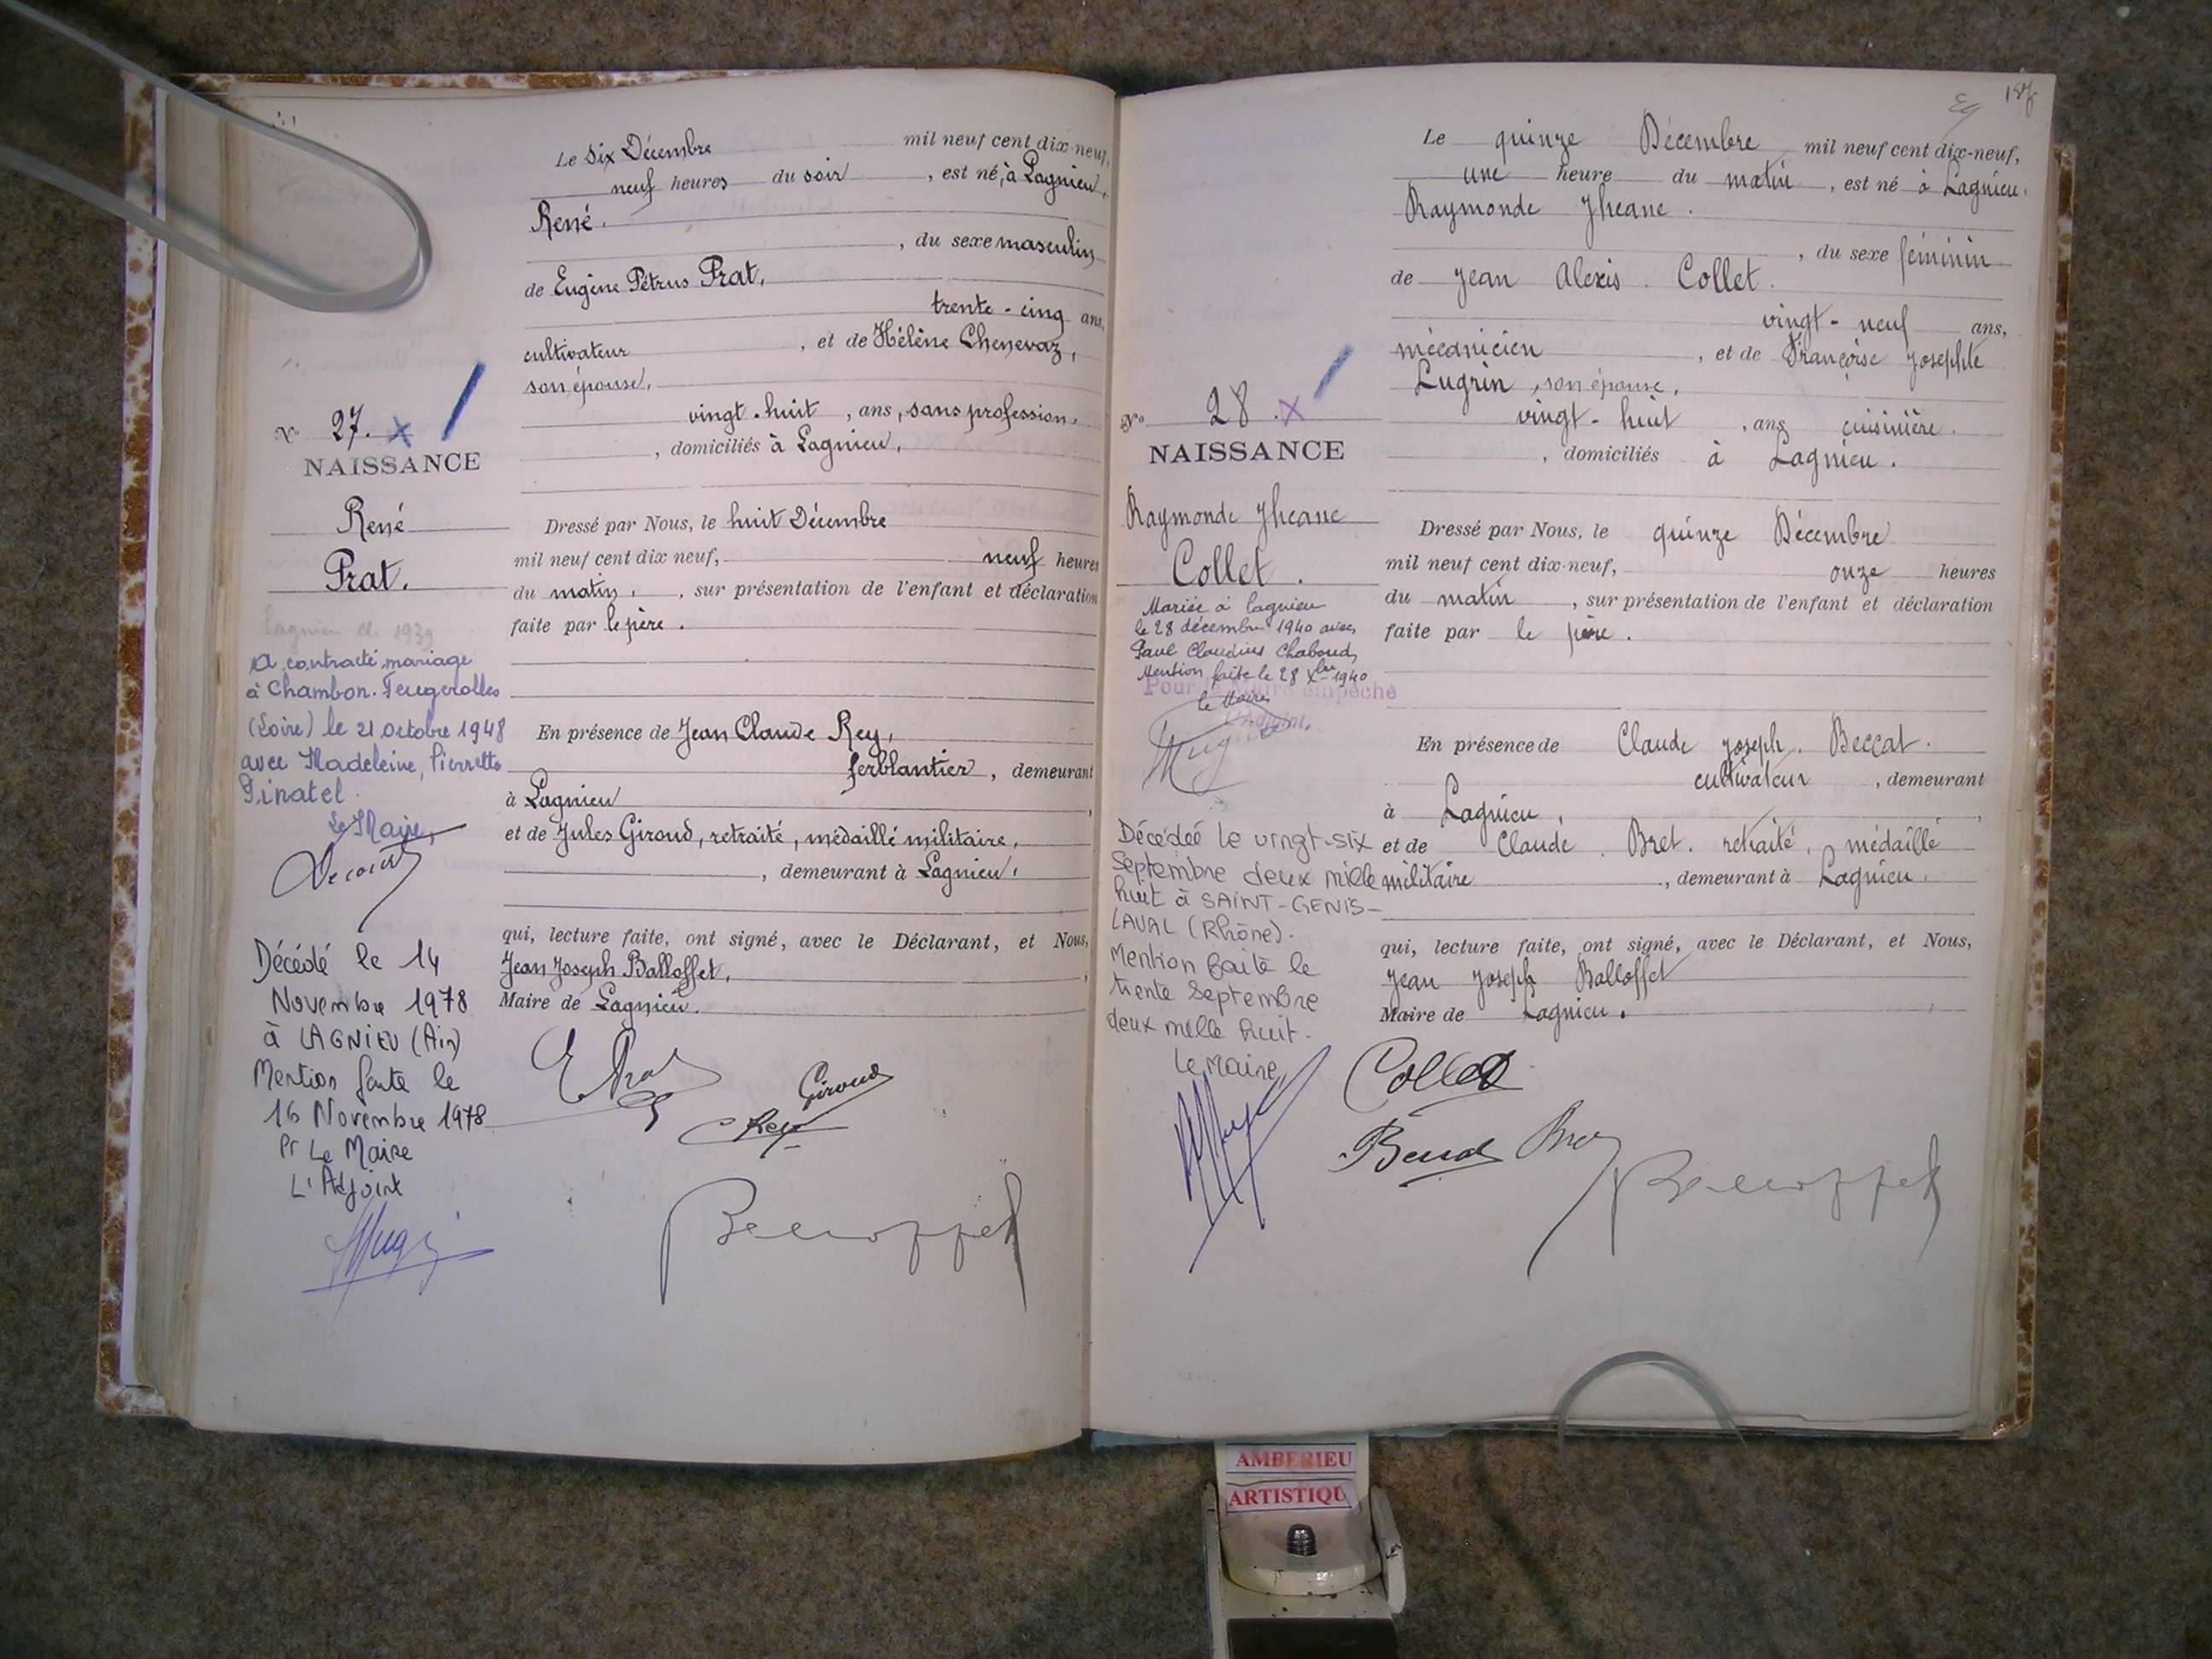 Le six Décembre mil neuf cent dix-neuf,
neuf heures du soir, est né, à Lagnieu,
René.
, du sexe masculin
de Eugène Pétrus Prat,
trente-cinq ans,
cultivateur, et de Hélène Chenevaz,
son épouse,
vingt-huit, ans, sans profession,
, domiciliés à Lagnieu,
N° 27. x
NAISSANCE
René
Prat.
Lagnieu cl. 1939
a contracté mariage
à Chambon-Feugerolles
(Loire) le 21 octobre 1948
avec Madeleine, Pierrette
Pinatel.
Le Maire,
Décédé le 14
Novembre 1978
à LAGNIEU (Ain)
Mention faite le
16 Novembre 1978
Pr Le Maire
L'Adjoint
Dressé par Nous, le huit Décembre
mil neuf cent dix neuf, neuf heures
du matin, , sur présentation de l'enfant et déclaration
faite par le père.
En présence de Jean Claude Rey,
ferblantier, demeurant
à Lagnieu,
et de Jules Giroud, retraité, médaillé militaire,
, demeurant à Lagnieu,
qui, lecture faite, ont signé, avec le Déclarant, et Nous,
Jean Joseph Balloffet,
Maire de Lagnieu.
E Prat
Giroud
Rey
Balloffet
187
Le quinze Décembre mil neuf cent dix-neuf,
une heure du matin, est né à Lagnieu.
Raymonde Jheane.
, du sexe féminin
de Jean Alexis Collet.
vingt-neuf ans,
mécanicien, et de Françoise Josephte
Lugrin, son épouse,
vingt-huit, ans cuisinière.
, domiciliés à Lagnieu.
N° 28. x
NAISSANCE
Raymonde Jheane
Collet.
Mariée à Lagnieu
le 28 décembre 1940 avec
Paul Claudius Chaboud,
Mention faite le 28 Xbre 1940
Pour le Maire empêché
le Maire
L'Adjoint,
Décédée le vingt-six
Septembre deux mille
huit à SAINT-GENIS-
LAVAL (Rhône).
Mention faite le
trente Septembre
deux mille huit.
Le Maire,
Dressé par Nous, le quinze Décembre
mil neuf cent dix-neuf, onze heures
du matin, sur présentation de l'enfant et déclaration
faite par le père.
En présence de Claude Joseph. Beccat.
cultivateur, demeurant
à Lagnieu,
et de Claude Bret. retraité, médaillé
militaire, demeurant à Lagnieu.
qui, lecture faite, ont signé, avec le Déclarant, et Nous,
Jean Joseph Balloffet
Maire de Lagnieu.
Collet
Bret
Balloffet
AMBERIEU
ARTISTIQU